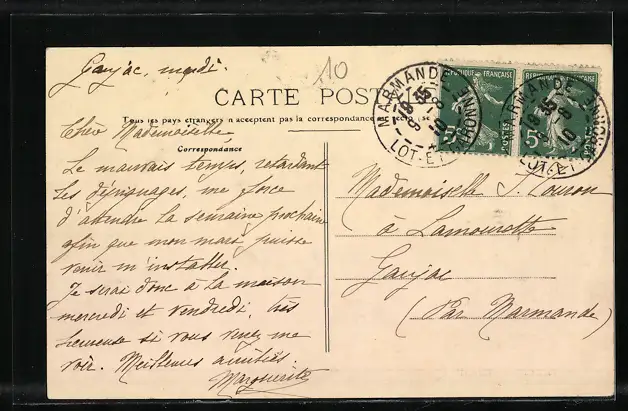 Gaujac, mardi.
10
CARTE POSTALE
Tous les pays étrangers n'acceptent pas la correspondance au recto
Correspondance
Chère Mademoiselle,
Le mauvais temps, retardant
les dépiquages, me force
d'attendre la semaine prochaine
afin que mon mari puisse
venir m'installer.
Je serai donc à la maison
mercredi et vendredi, très
heureuse si vous venez me
voir. Meilleures amitiés.
Marguerite
Mademoiselle J. Louron
à Lamourette
Gaujac
(Par Marmande)
REPUBLIQUE FRANÇAISE
POSTES
5c
REPUBLIQUE FRANÇAISE
POSTES
5c
MARMANDE
18-35
9-8
10
LOT-ET-GARONNE
MARMANDE
18-35
9-8
10
LOT-ET-GARONNE